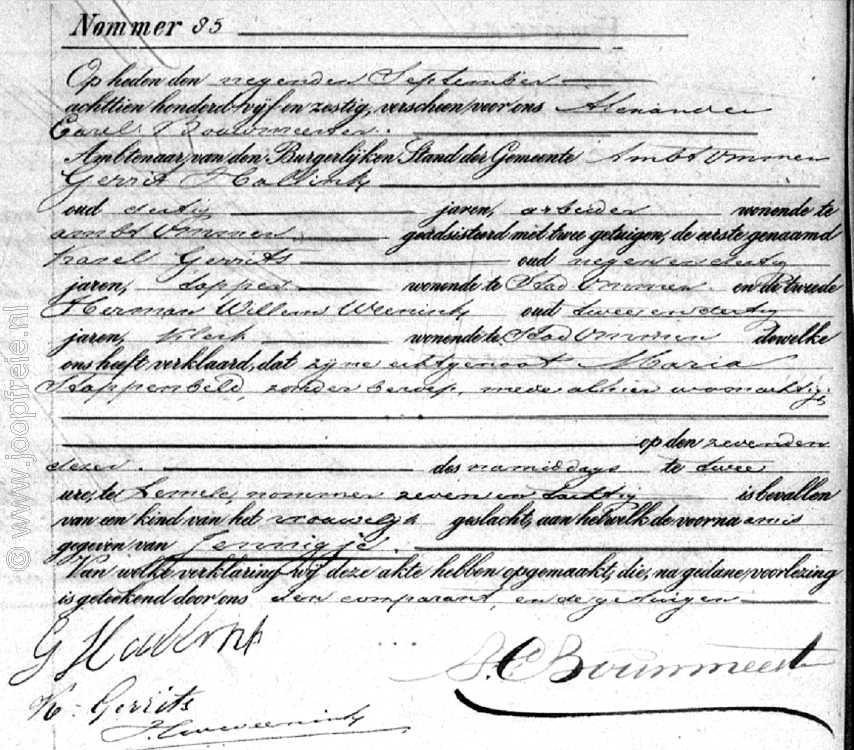 Nommer 85
Op heden den negenden September
achttien honderd vijf en zestig, verscheen voor ons Alexander
Carel Bouwmeester.
Ambtenaar van den Burgerlijken Stand der Gemeente Ambt Ommen
Gerrit Hallink
oud dertig jaren, arbeider wonende te
ambt Ommen geadsisteerd met twee getuigen, de eerste genaamd
Karel Gerrits oud negenendertig
jaren, tapper wonende te Stad Ommen en de tweede
Herman Willem Weenink oud tweeendertig
jaren, klerk wonende te Stad Ommen dewelke
ons heeft verklaard, dat zijne echtgenoot Maria
Stappenbeld, zonder beroep, mede alhier woonachtig,
op den zevenden
dezer. des namiddags te twee
ure, te Lemele, nommer zeven en tachtig is bevallen
van een kind van het vrouwelijk geslacht, aan hetwelk de voornaam is
gegeven van Jennigje.
Van welke verklaring wij deze akte hebben opgemaakt, die, na gedane voorlezing
is geteekend door ons den comparant, en de getuigen
G Hallink
A. C. Bouwmeester
K. Gerrits
H W Weenink
© www.joopfreie.nl